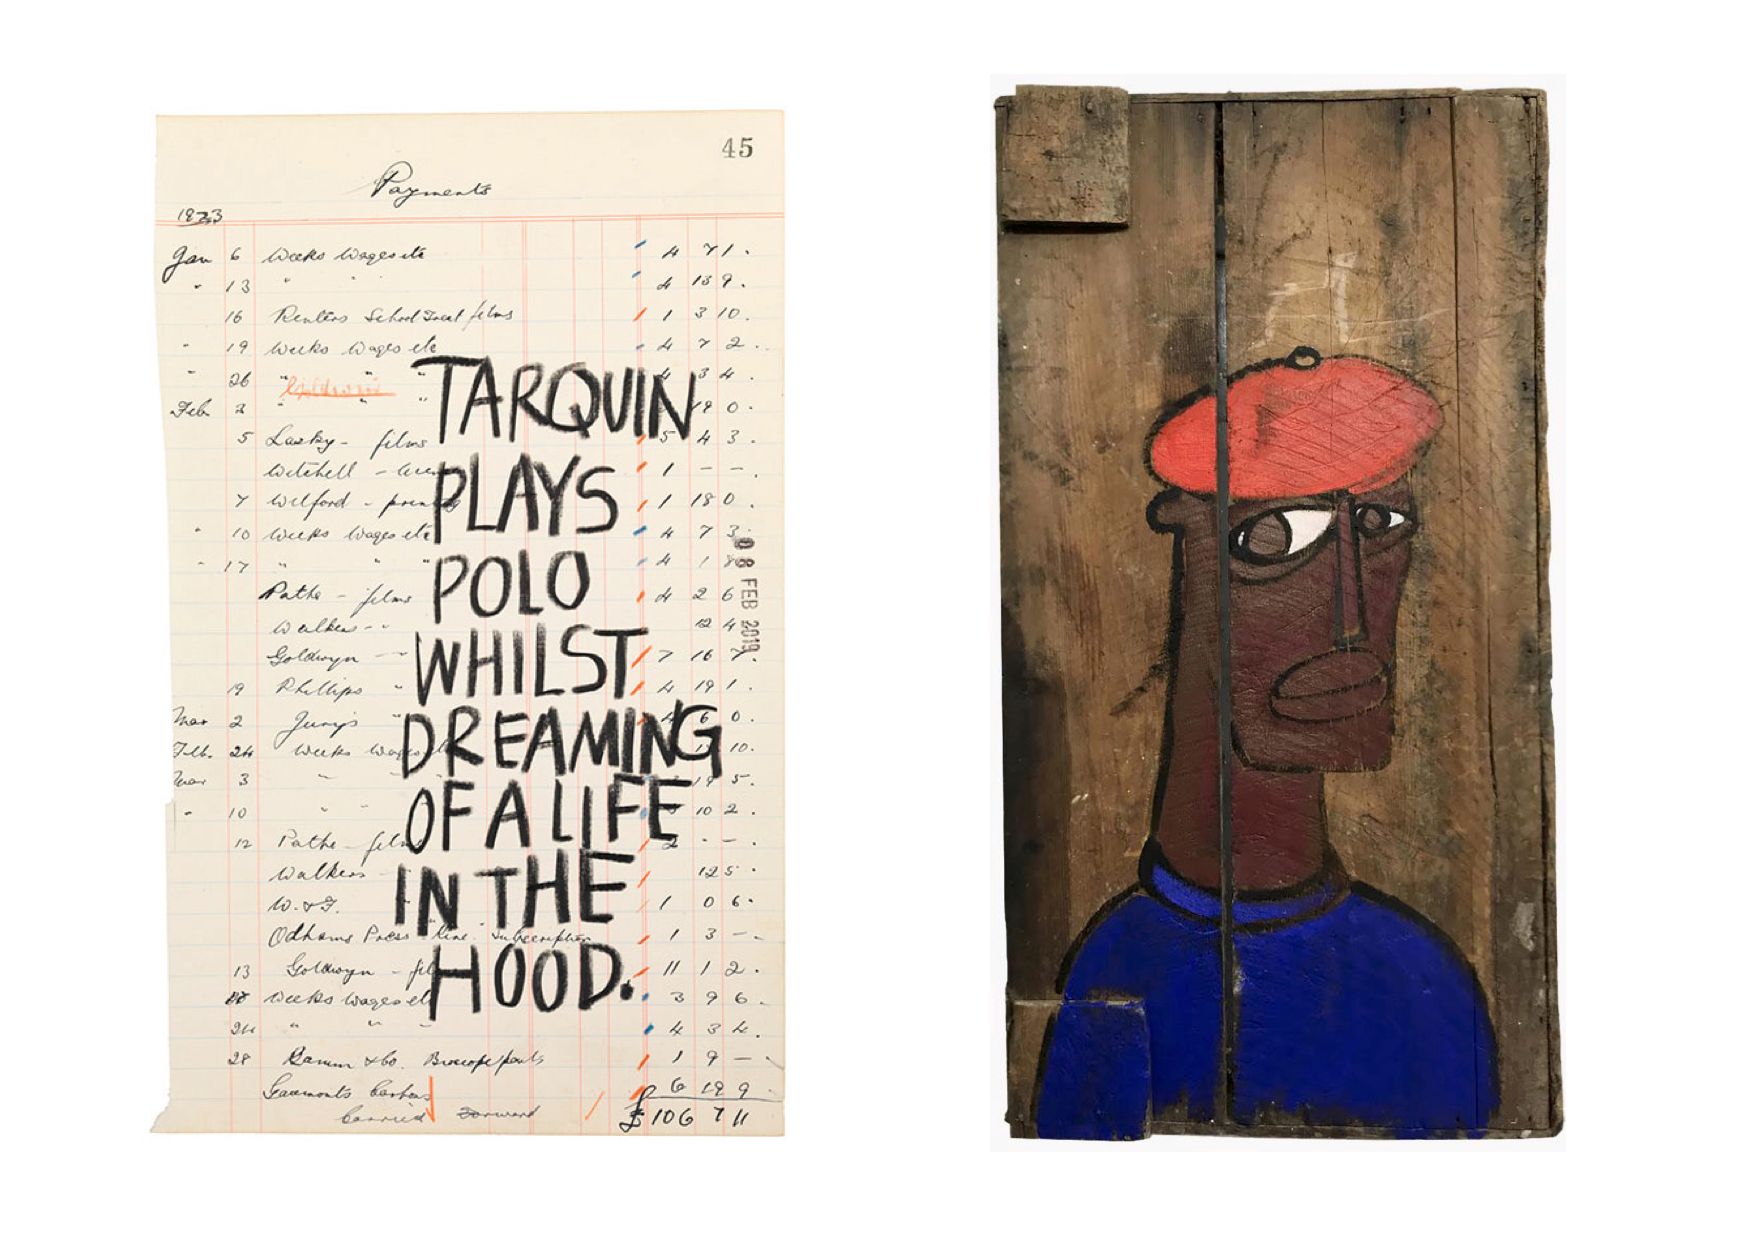 45
Payments
1923
Jan 6 Weeks Wages etc 4 7 1.
" 13 " " 4 13 9.
16 Renters School Treat films 1 3 10.
" 19 Weeks Wages etc 4 7 2.
" 26 " " " 4 3 4.
Feb 2 " " " 19 0.
5 Lasky - films 5 4 3.
Witchell - 1 - - .
7 Wilford - 1 18 0.
" 10 Weeks Wages etc 4 7 3
" 17 " " " 4 1
Pathe - films 4 2 6
Walkers - " 12 4
Goldwyn - 7 16 7.
19 Phillips " 4 19 1.
Mar 2 Jury's " 4 6 0.
Feb. 24 Weeks Wages 10.
Mar 3 " " 19 5.
" 10 " " 10 2.
12 Pathe - 2 - - .
Walkers - 12 5.
W. & F. 1 0 6.
Odhams Press - Kine: Subscription 1 3 - .
13 Goldwyn - 11 1 2.
17 Weeks Wages 3 9 6.
24 " " " 4 3 4.
28 & Co. Bioscope parts 1 9 -
Gaumonts 6 19 9
Carried Forward £106 7 11
TARQUIN
PLAYS
POLO
WHILST
DREAMING
OF A LIFE
IN THE
HOOD.
08 FEB 2019